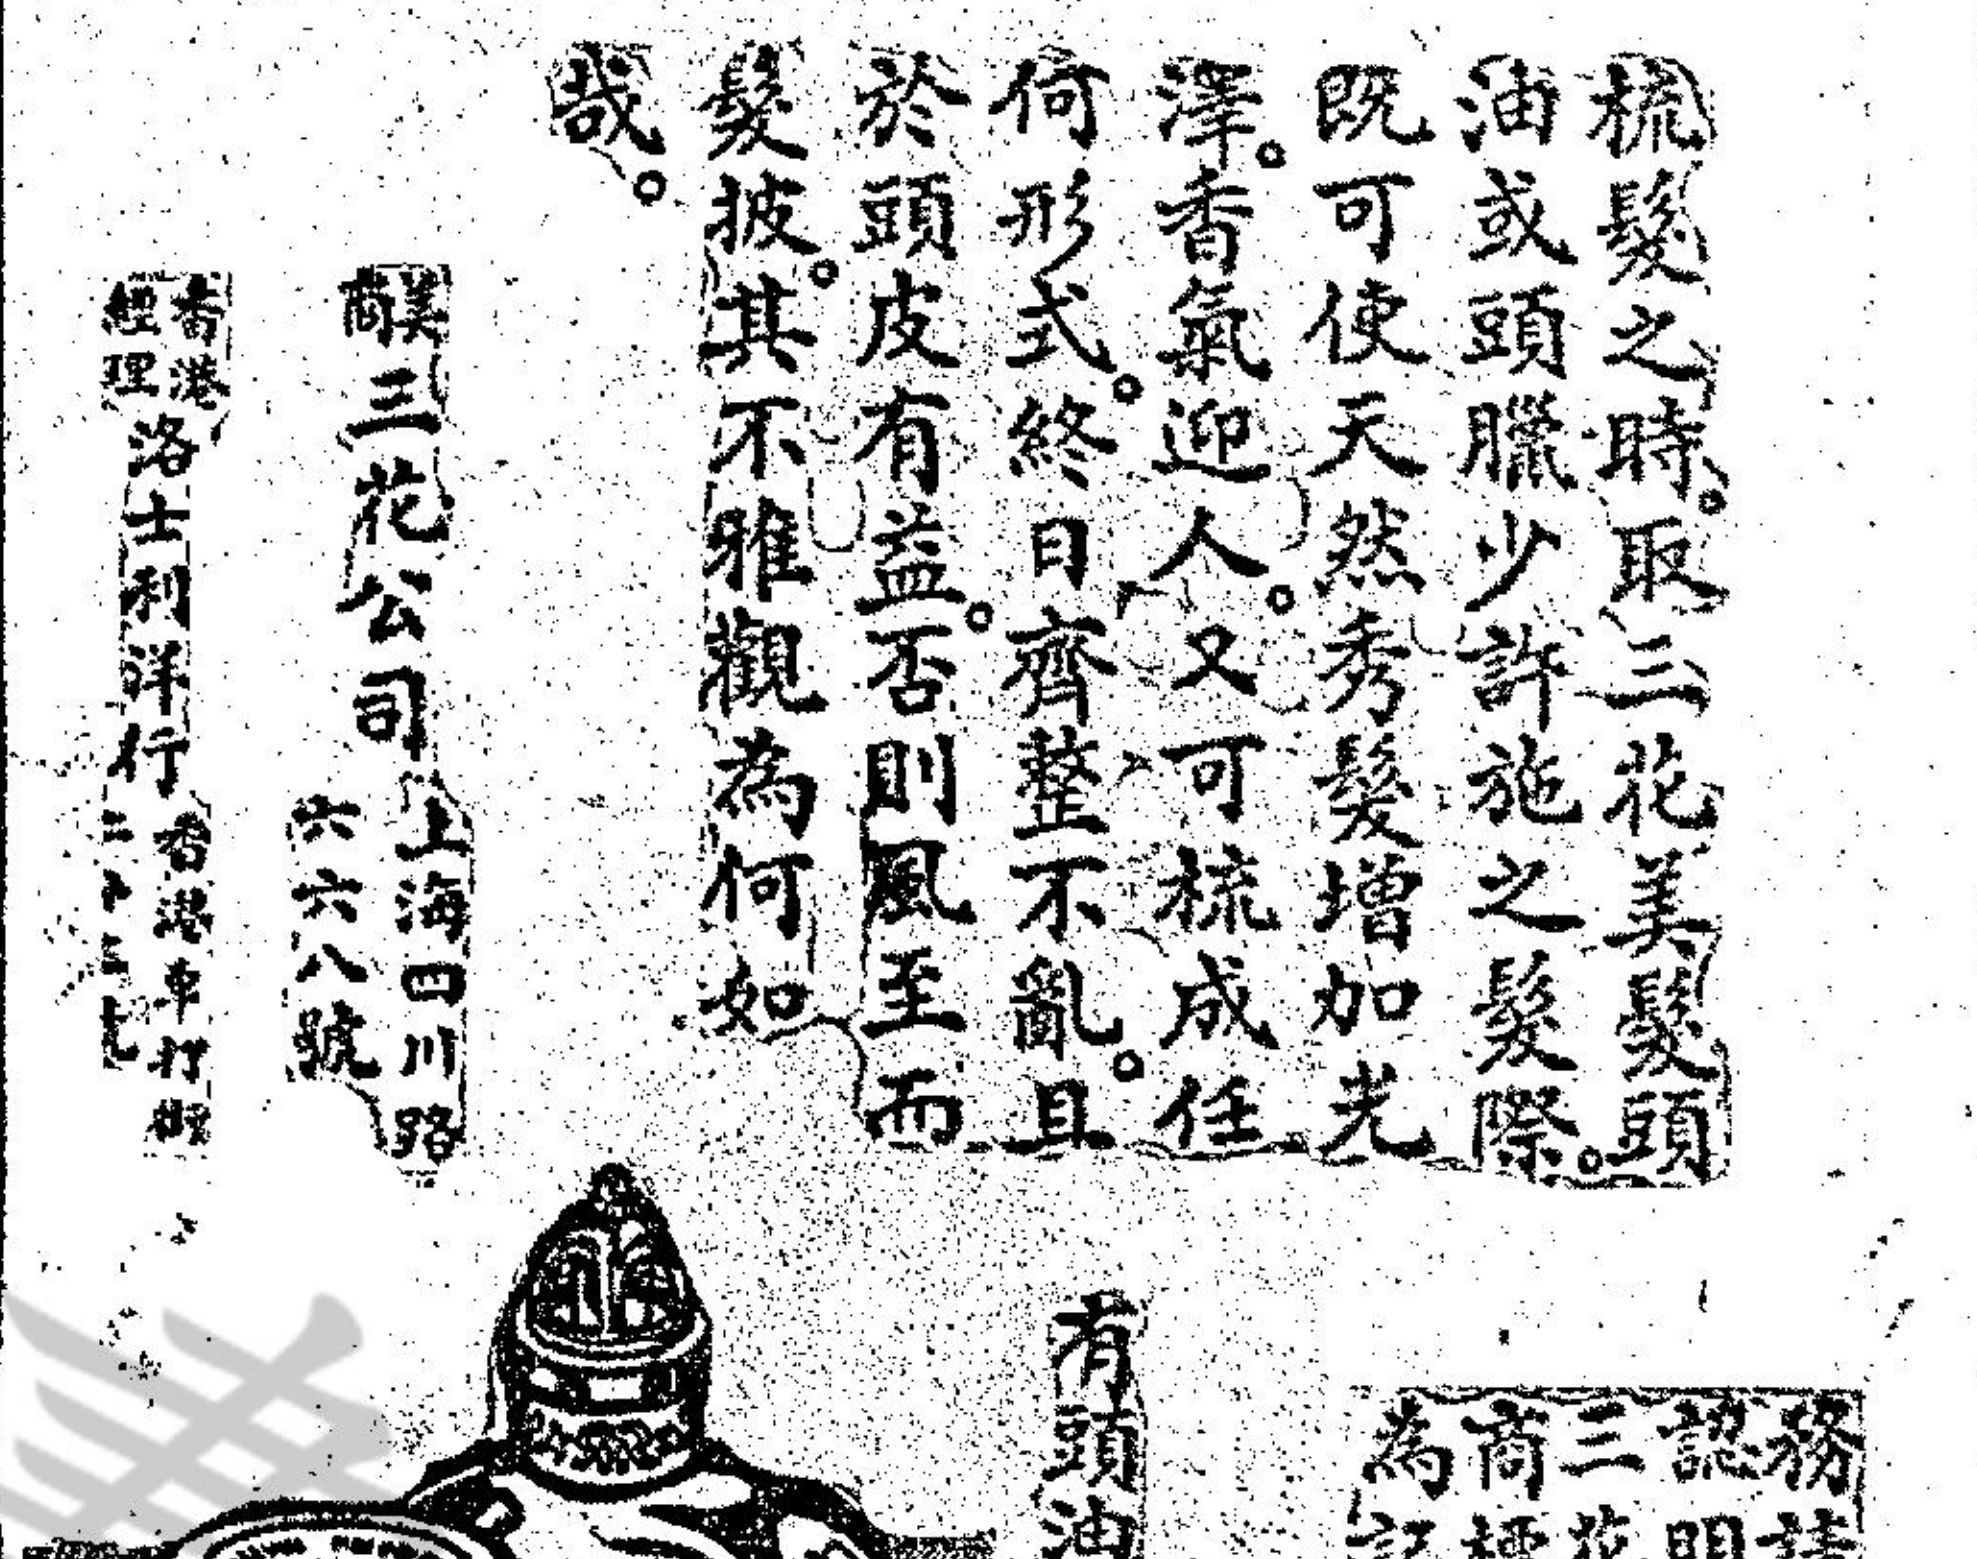 梳髮之時。取三花美髮頭
油或頭臘少許施之髮際。
既可使天然秀髮增加光
澤。香氣迎人。又可梳成任
何形式。終日齊整不亂。且
於頭皮有益。否則風至而
髮披。其不雅觀為何如
哉。
美商三花公司
上海四川路
六六八號
香港經理洛士利洋行
香港車打街
務請
認明
三花
商標
為記
有頭油